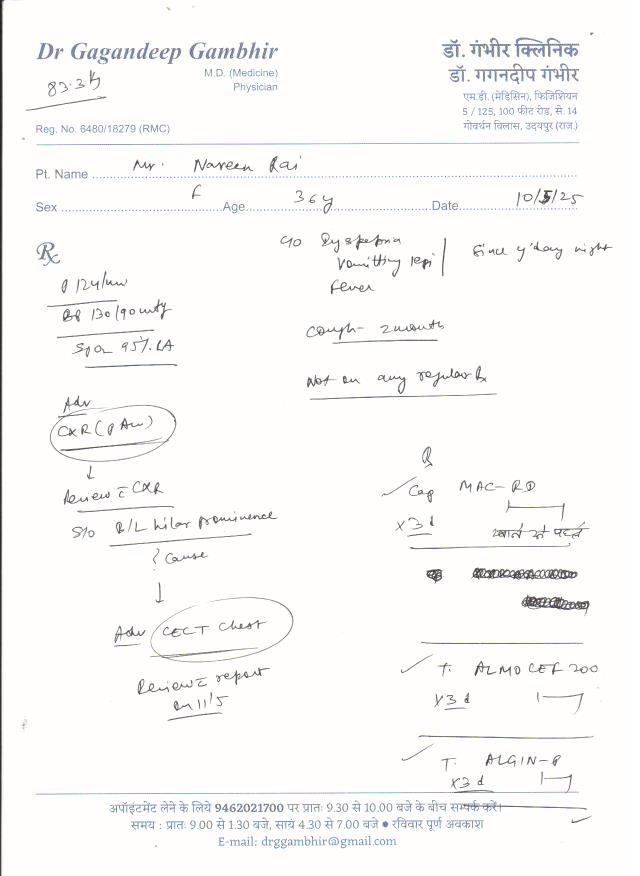 Dr Gagandeep Gambhir
M.D. (Medicine)
Physician
83.3 kg
Reg. No. 6480/18279 (RMC)
डॉ. गंभीर क्लिनिक
डॉ. गगनदीप गंभीर
एम.डी. (मेडिसिन), फिजिशियन
5 / 125, 100 फीट रोड़, से. 14
गोवर्धन विलास, उदयपुर (राज.)
Pt. Name Mr. Naveen Rai
Sex Age 36y Date 10/5/25
Rx
P 124/min
BP 130/90 mmHg
SpO2 95% RA
Adv
CXR (PA view)
↓
Review c̄ CXR
S/o B/L hilar prominence
? Cause
↓
Adv CECT Chest
Review c̄ report
on 11/5
c/o
Vomitting
Fever
Since y'day night
Cough - 2 month
Not on any regular Rx
Rx
✓ Cap MAC-RD
x 3 d खाने से पहले
✓ T. ALMOCEF 200
x 3 d
✓ T. ALGIN-P
x 3 d
अपॉइंटमेंट लेने के लिये 9462021700 पर प्रातः 9.30 से 10.00 बजे के बीच सम्पर्क करें।
समय : प्रातः 9.00 से 1.30 बजे, सायं 4.30 से 7.00 बजे ● रविवार पूर्ण अवकाश
E-mail: drggambhir@gmail.com